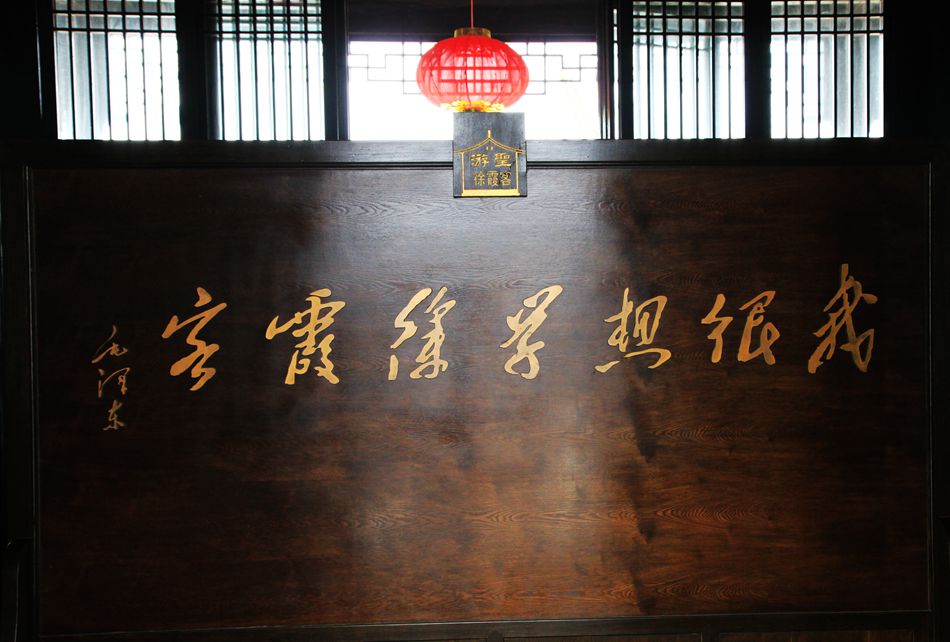 游聖
徐霞客
我很想学徐霞客
毛泽东